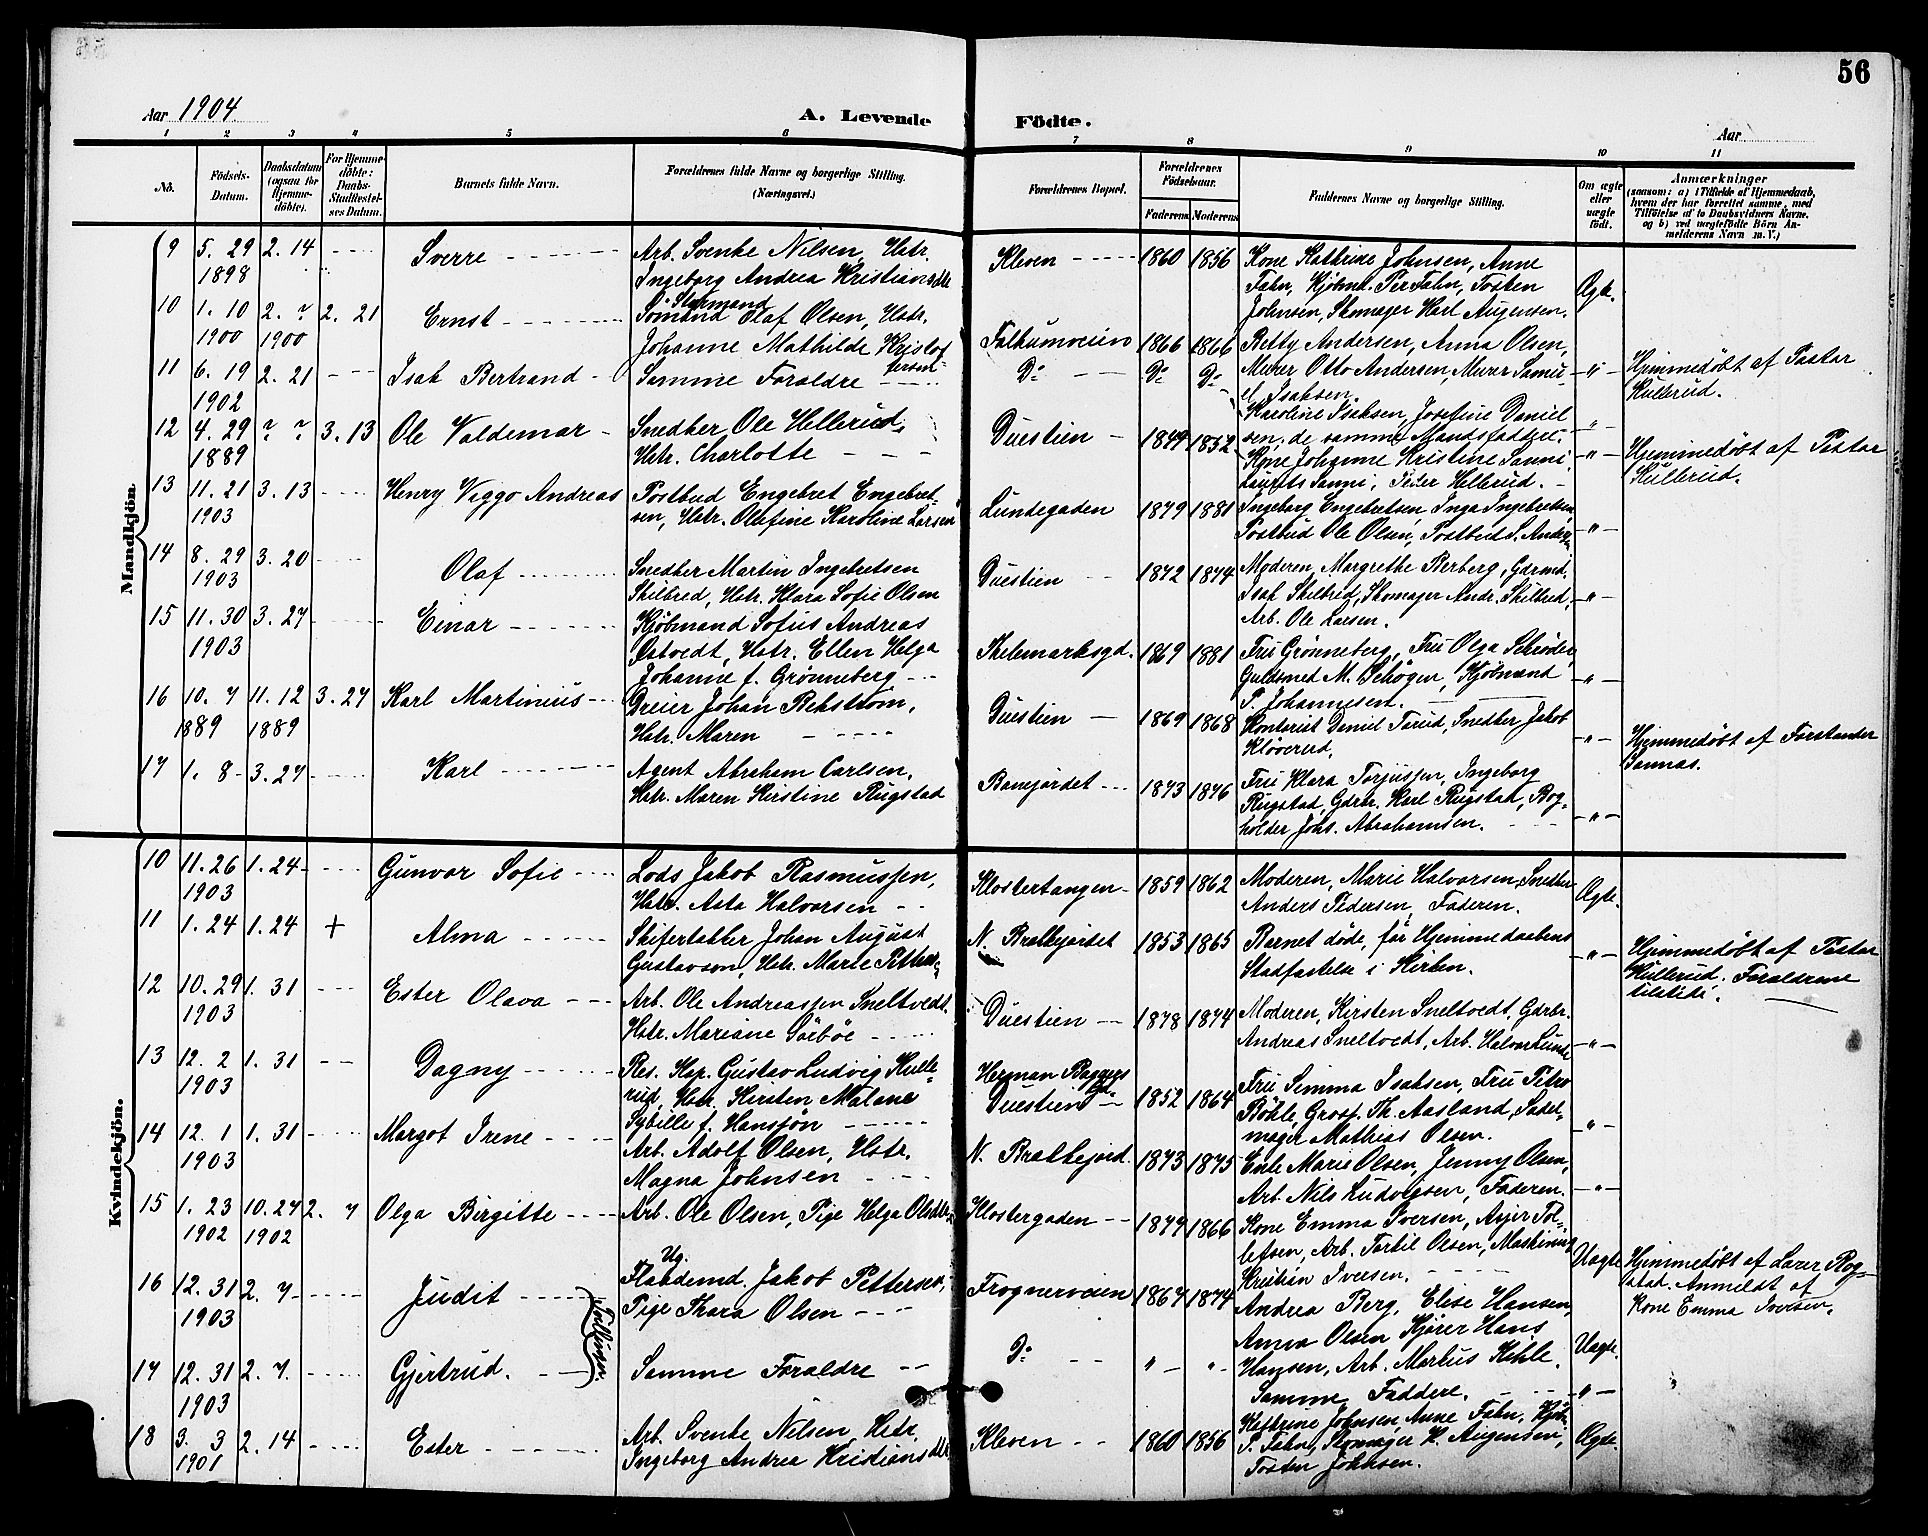 56
Aar 1904
A. Levende Födte.
Aar
1 2 3 4 5 6 7 8 9 10 11
No.
Födsels-Datum.
Daabsdatum (ogsaa for Hjemmedöbte).
For Hjemmedöbte: Daabs-Stadfestelses Datum.
Barnets fulde Navn.
Forældrenes fulde Navne og borgerlige Stilling. (Næringsvei.)
Forældrenes Bopæl.
Forældrenes Födselsaar.
Faderens Moderens
Faddernes Navne og borgerlige Stilling.
Om ægte eller uægte födt.
Anmærkninger
(saasom: a) i Tilfælde af Hjemmedaab, hvem der har forrettet samme, med Tilföielse af to Daabsvidners Navne, og b) ved uægtefödte Börn Anmelderens Navn m. V.)
Mandkjön.
9 5. 29 1898 2. 14 Sverre
Arb. Svenke Nilsen, Hstr.
Ingeborg Andrea Kristiansdtr
Kleven 1860 1856
Kone Kathrine Johnsen, Anne
Fahn, Kjöbm. Per Fahn, Tosten
Johnsen, Skomager Karl Augensen.
Ægte.
10 1. 10 1900 2. ? 1900 2. 21 Ernst
Sömand Olaf Olsen, Hstr.
Johanne Mathilde Kristof
fersen
Falkumveien 1866 1866
Betty Andersen, Anna Olsen,
Murer Otto Andersen, Murer Samu-
el Isaksen.
Hjemmedöbt af Pastor
Kullerud.
11 6. 19 1902 2. 21 Isak Bertrand
Samme Foraldre
Do Do Do
Karoline Isaksen, Josefine Daniel
sen, de samme Mandsfaddere.
12 4. 29 1889 ? ? 3. 13 Ole Valdemar
Snedker Ole Hellerud,
Hstr. Charlotte
Duestien 1849 1852
Kone Johanne Kristine Sanni,
Laurits Sanni, Peder Hellerud.
Hjemmedöbt af Pastor
Kullerud.
13 11. 21 1903 3. 13 Henry Viggo Andreas
Postbud Engebret Engebret-
sen, Hstr. Olafine Karoline Larsen
Lundegaden 1879 1881
Ingeborg Engebretsen, Inga Ingebretsen,
Postbud Ole Olsen, Postbud S. Anders-
14 8. 29 1903 3. 20 Olaf
Snedker Martin Ingebretsen
Skilbred, Hstr. Klara Sofie Olsen
Duestien 1872 1874
Moderen, Margrethe Berberg, Gdrmd.
Isak Skilbrid, Skomager Andr. Skilbred,
Arb. Ole Larsen.
15 11. 30 1903 3. 27 Einar
Kjöbmand Sofus Andreas
Østvedt, Hstr. Ellen Helga
Johanne f. Grönneberg
Thelemarksgd. 1869 1881
Fru Grönneberg, Fru Olga Schröder,
Guldsmed M. Schögen, Kjöbmand
P. Johannesen.
16 10. 7 1889 11. 12 1889 3. 27 Karl Martinius
Dreier Johan Bekström,
Hstr. Maren
Duestien 1869 1868
Kontorist Daniel Torud, Snedker Jakob
Klöverud.
Hjemmedöbt af Forstander
Sannas.
17 1. 8 3. 27 Karl
Agent Abraham Carlsen,
Hstr. Maren Kirstine Rugstad
Banejordet 1873 1876
Fru Klara Torjussen, Ingeborg
Rugstad, Gdrbr. Karl Rugstad, Bog-
holder Johs. Abrahamsen.
Kvindekjön.
10 11. 26 1903 1. 24 Gunvor Sofie
Lods Jakob Rasmussen,
Hstr. Asta Halvorsen
Klostertangen 1859 1862
Moderen, Marie Halvorsen, Snedker
Anders Pedersen, Faderen.
Ægte.
11 1. 24 1. 24 + Alma
Skifertækker Johan August
Gustavson, Hstr. Marie Petters-
N. Brækkejordet 1853 1865
Barnet döde, för Hjemmedaabens
Stadfæstelse i Kirken.
Hjemmedöbt af Pastor
Kullerud. Forældrene
tilstede.
12 10. 29 1903 1. 31 Ester Olava
Arb. Ole Andreassen Sneltvedt
Hstr. Mariane Sörböe
Duestien 1878 1874
Moderen, Kirsten Sneltvedt, Gdrbr.
Andreas Sneltvedt, Arb. Halvor Lunde
13 12. 2 1903 1. 31 Dagny
Res. Kap. Gustav Ludvig Kulle-
rud, Hstr. Kirsten Malene
Sybille f. Hansson
Herman Baggers gd.
Duestien 1852 1864
Fru Simma Isaksen, Fru Petra
Böhle, Gross. Th. Aasland, Sadel-
mager Mathias Olsen.
14 12. 1 1903 1. 31 Margot Irene
Arb. Adolf Olsen, Hstr.
Magna Johnsen
N. Brækkejord. 1873 1875
Enke Marie Olsen, Jenny Olsen,
Arb Nils Ludvigsen, Faderen.
15 1. 23 1902 10. 27 1902 2. 7 Olga Birgitte
Arb. Ole Olsen, Pige Helga Olsen
Klostergaden 1879 1866
Kone Emma Iversen, Asjer Tol-
lefsen, Arb. Torkil Olsen, Maskinist
Kristian Iversen.
Uægte
Hjemmedöbt af Lærer Rog-
stad. Anmeldt af
Kone Emma Iversen.
16 12. 31 1903 2. 7 Judit
Ug.
Pettersen,
Pige Thara Olsen
Frognerveien 1867 1874
Andrea Berg, Elise Hansen,
Anna Olsen, Kjörer Hans
Hansen, Arb. Markus Kihle.
Uægte.
Tvillinger.
17 12. 31 1903 2. 7 Gjertrud.
Samme Foraldre
Do
Samme Faddere.
18 3. 3 1901 2. 14 Ester
Arb. Svenke Nilsen, Hstr.
Ingeborg Andrea Kristiansdtr
Kleven 1860 1856
Kathrine Johnsen, Anne Fahn, Kjöb.
P. Fahn, Skomager K. Augensen,
Tosten Johnsen.
Ægte.